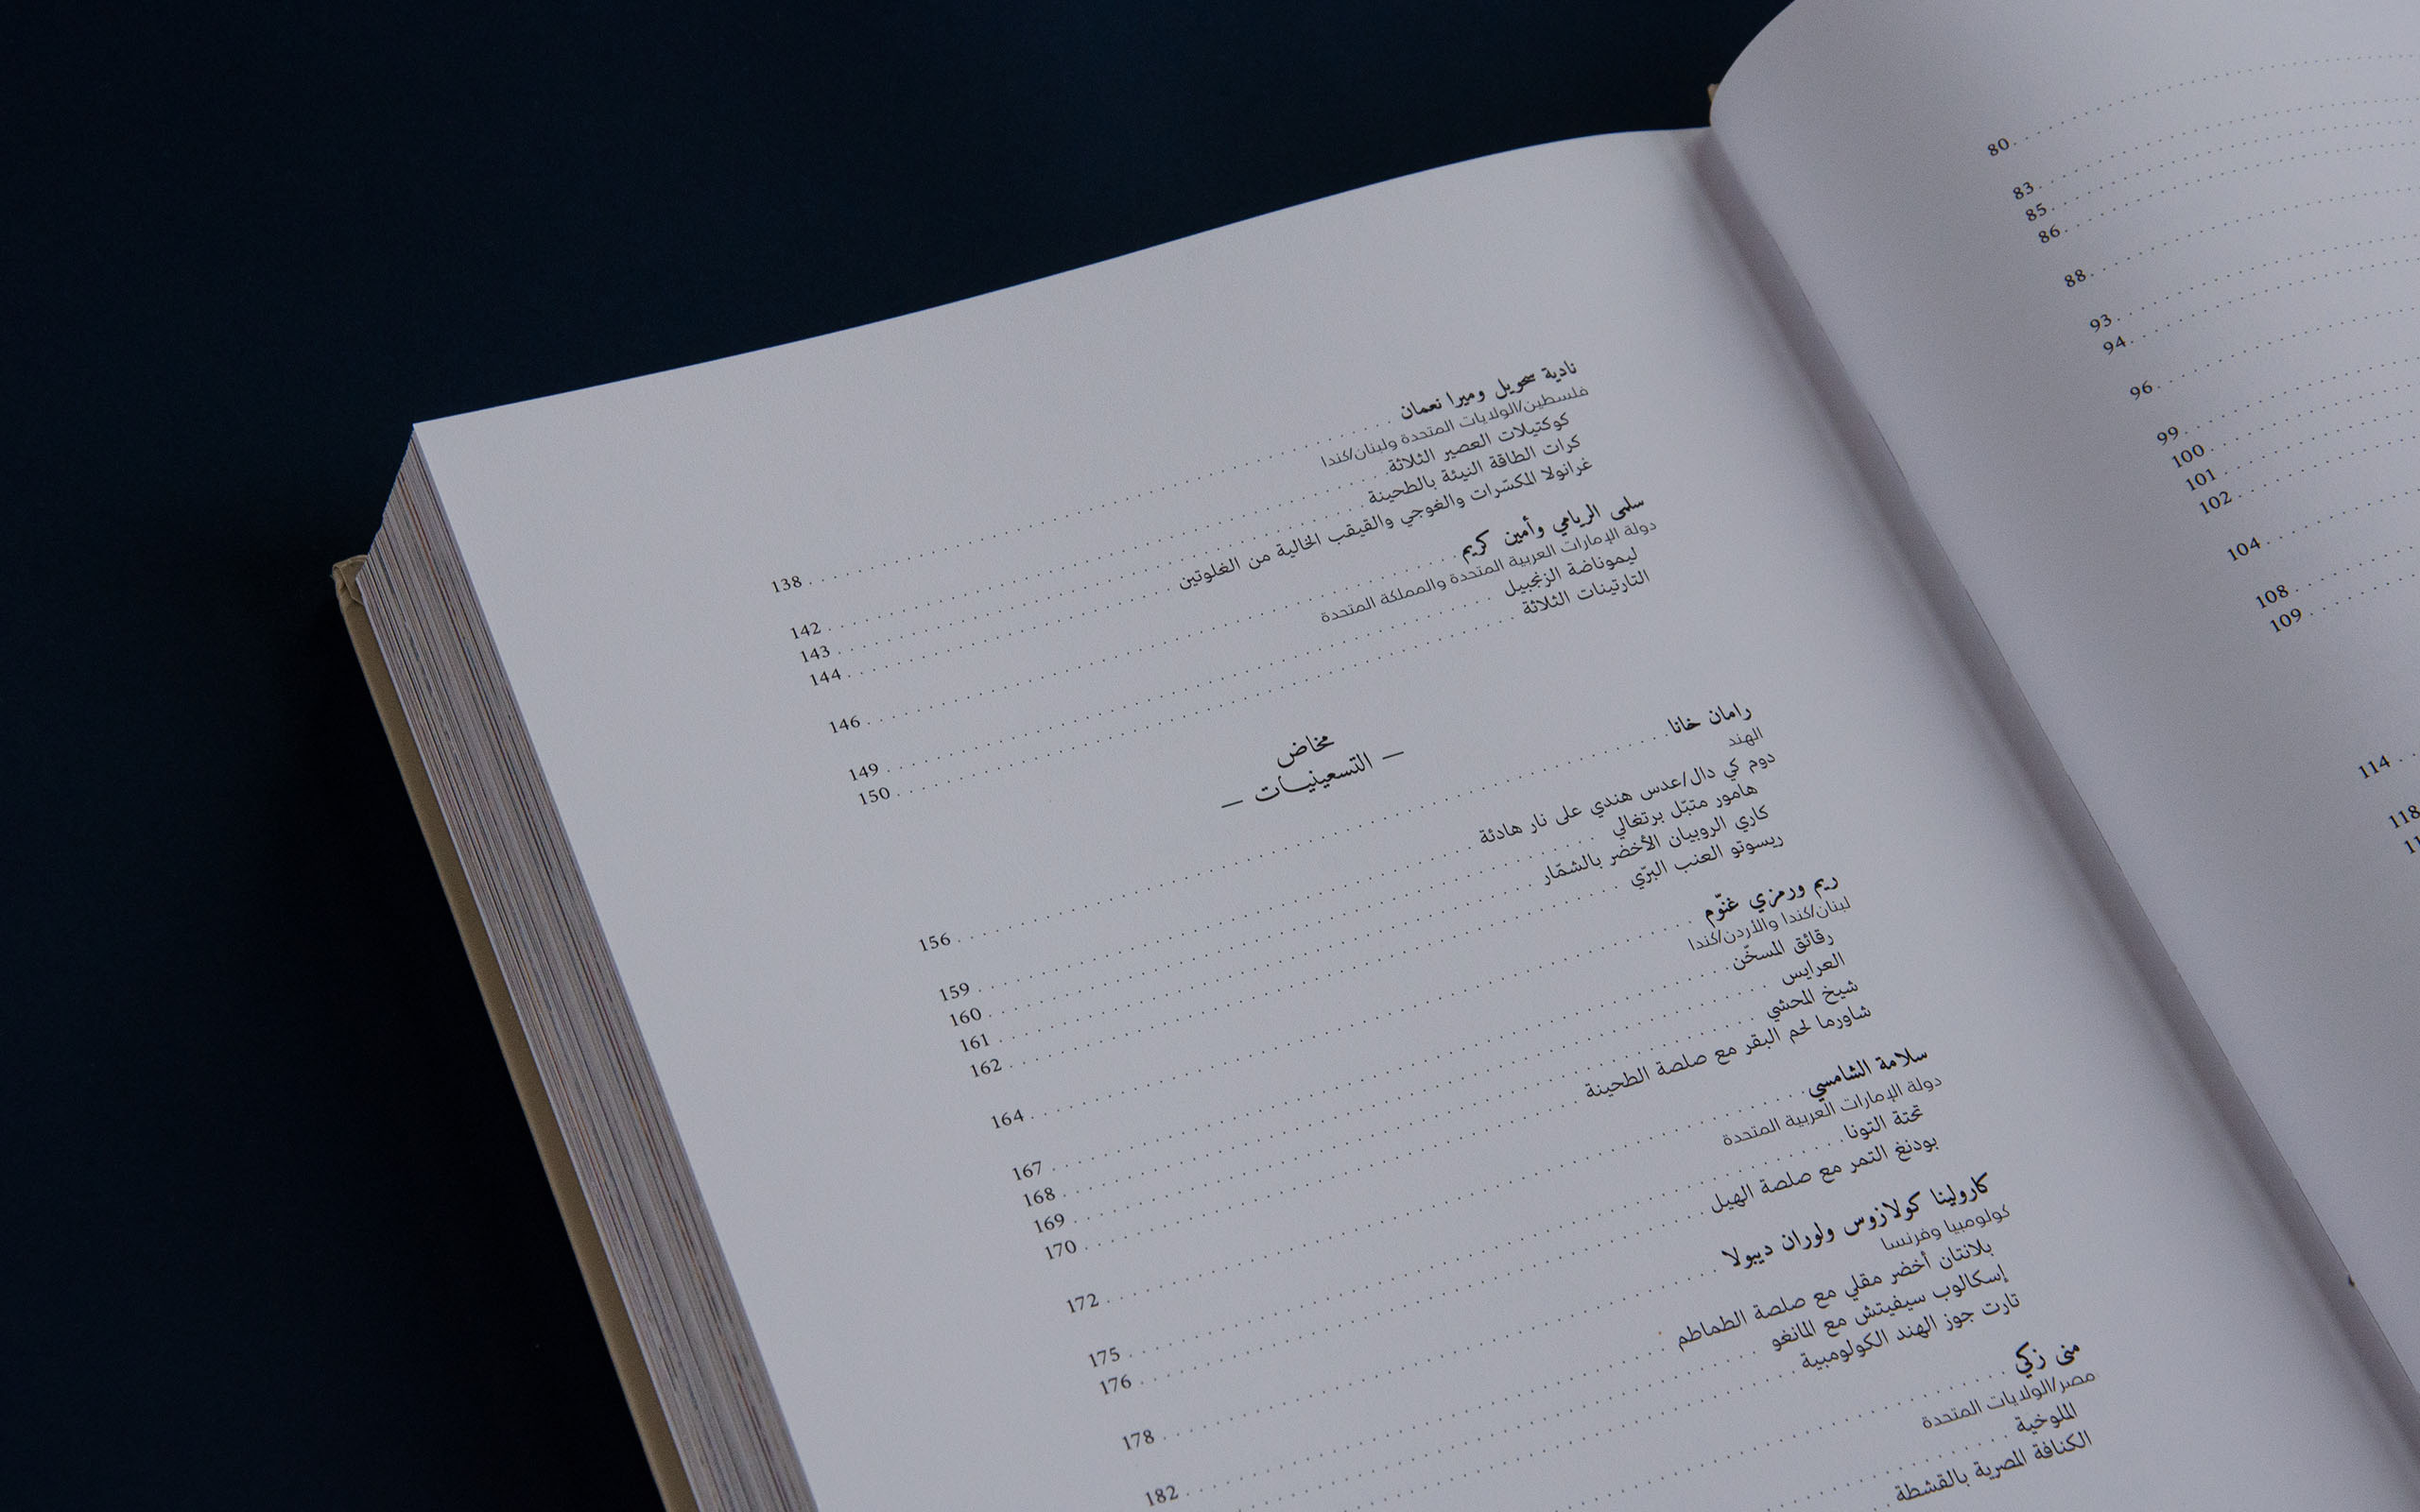 80
83
85
86
88
93
94
96
99
100
101
102
104
108
109
114
118
نادية سحويل وميرا نعمان 138
فلسطين/الولايات المتحدة ولبنان/كندا
كوكتيلات العصير الثلاثة 142
كرات الطاقة النيئة بالطحينة 143
غرانولا المكسّرات والغوجي والقيقب الخالية من الغلوتين 144
سلمى الريامي وأمين كريم 146
دولة الإمارات العربية المتحدة والمملكة المتحدة
ليموناضة الزنجبيل 149
التارتينات الثلاثة 150
مخاض
— التسعينيات —
رامان خانا 156
الهند
دوم كي دال/عدس هندي على نار هادئة 159
هامور متبّل برتغالي 160
كاري الروبيان الأخضر بالشمّار 161
ريسوتو العنب البرّي 162
ريم ورمزي غنّوم 164
لبنان/كندا والأردن/كندا
رقائق المسخّن 167
العرايس 168
شيخ المحشي 169
شاورما لحم البقر مع صلصة الطحينة 170
سلامة الشامسي 172
دولة الإمارات العربية المتحدة
تحتة التونا 175
بودنغ التمر مع صلصة الهيل 176
كارولينا كولازوس ولوران ديبولا 178
كولومبيا وفرنسا
بلانتان أخضر مقلي مع صلصة الطماطم 182
إسكالوب سيفيتش مع المانغو
تارت جوز الهند الكولومبية
منى زكي
مصر/الولايات المتحدة
الملوخية
الكنافة المصرية بالقشطة